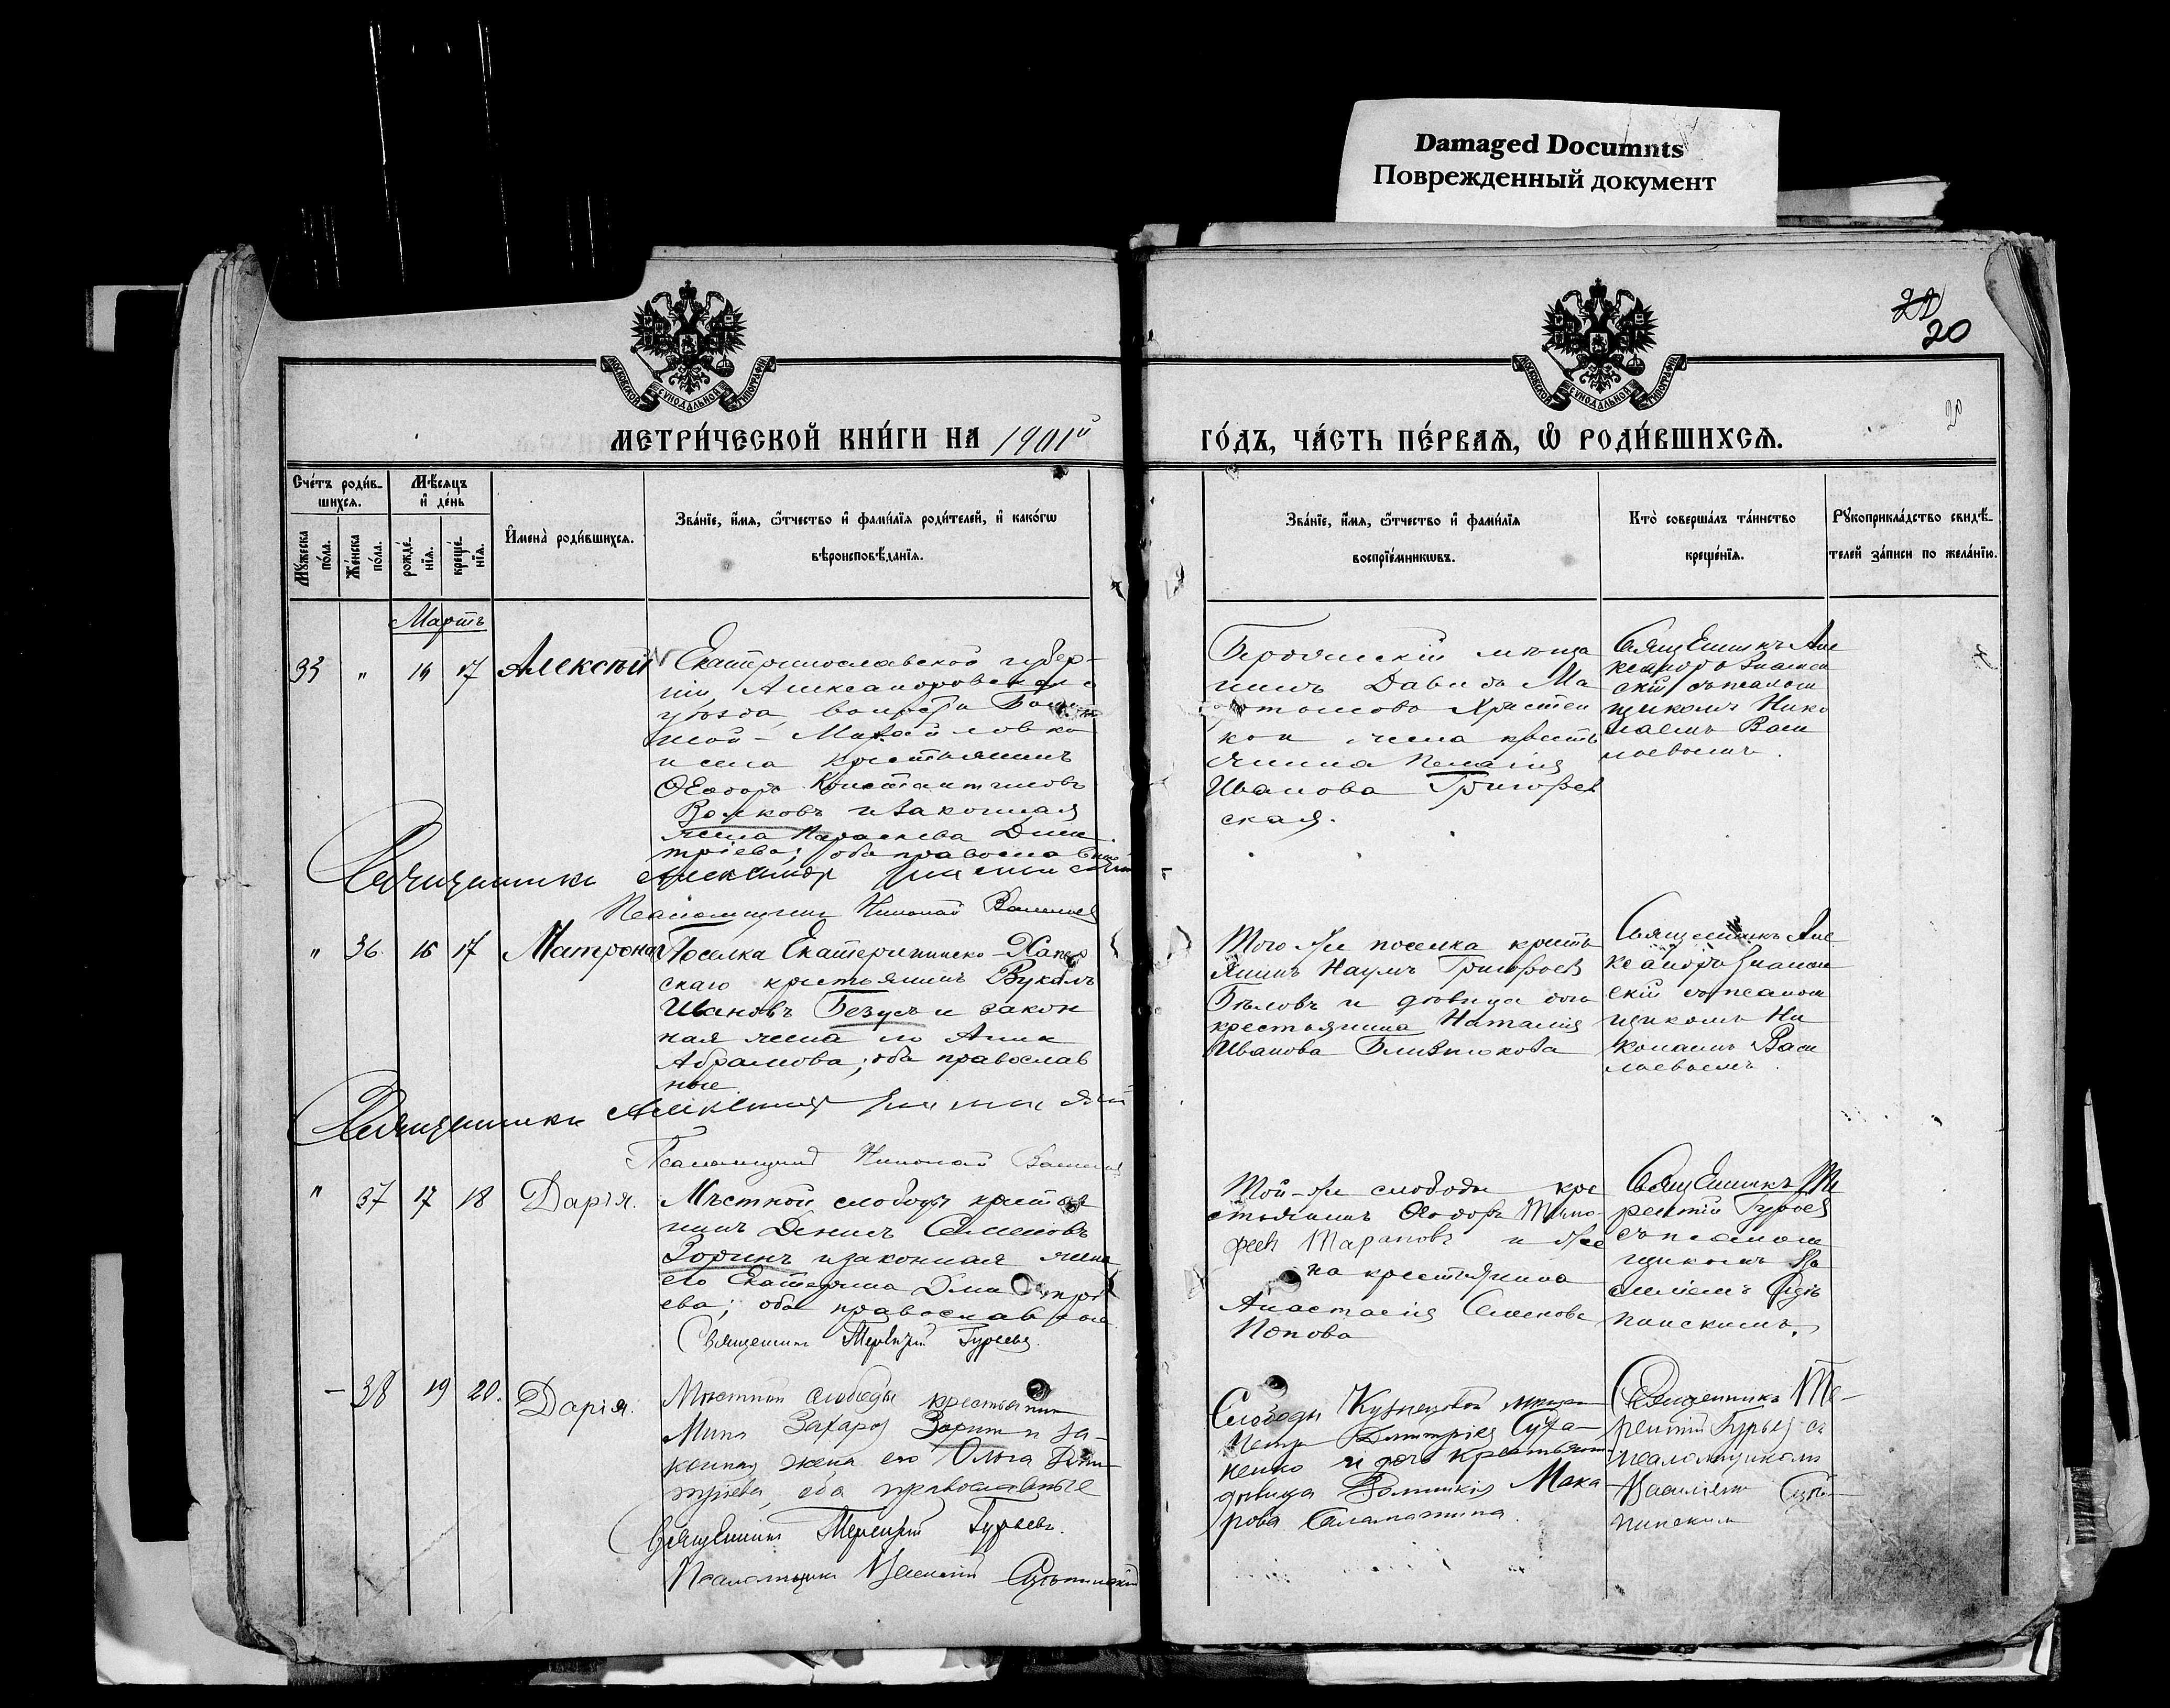 Damaged Documnts
Поврежденный документ
20
20
МОСКОВСКОЙ СѴНОДАЛЬНОЙ ТИПОГРАФІИ
МОСКОВСКОЙ СѴНОДАЛЬНОЙ ТИПОГРАФІИ
МЕТРИ́ЧЕСКОЙ КНИ́ГИ НА 1901й
ГО́ДЪ, ЧА́СТЬ ПЕ́РВАѦ, Ѿ РОДИ́ВШИХСѦ.
Сче́тъ роди́в-
шихсѧ.
Мꙋ́жеска по́ла.
Же́нска по́ла.
Мѣ́сѧцъ
и҆ де́нь
рожде́-
нїѧ.
креще́-
нїѧ.
И҆мена̀ роди́вшихсѧ.
Зва́нїе, и҆́мѧ, ѻ҆́тчество и҆ фами́лїѧ роди́телей, и҆ како́гѡ
вѣроисповѣ́данїѧ.
Зва́нїе, и҆́мѧ, ѻ҆́тчество и҆ фами́лїѧ
воспрїе́мникѡвъ.
Кто̀ соверша́лъ та́инство
креще́нїѧ.
Рꙋкоприкла́дство свидѣ́-
телей за́писи по жела́нїю.
Мартъ
17 Алексѣй
Екатеринославской губер-
ніи, Александровскаго
уѣзда, волости
Михайловки
крестьянинъ
Ѳеодоръ Константиновъ
Волковъ и законная
жена Параскева Дми
тріева; оба православные
Священникъ Александръ
Псаломщикъ Николай Васильевъ
Бердянскій мѣща
нинъ Давидъ
крестья
Пелагія
Иванова Григорьев
ская.
Священникъ Але
ксандръ Знамен
скій съ псалом
щикомъ Нико
лаемъ Васи
льевымъ.
" 36. 16 17 Матрона
Поселка Екатерининско-Хапер
скаго крестьянинъ Вуколъ
Ивановъ Безусъ и закон
ная жена его Анна
Абрамова; оба православ
ные
Священникъ Александръ
Псаломщикъ Николай Васильевъ
Того же поселка кресть
янинъ Наумъ Григорьевъ
Бѣловъ и дѣвица дочь
крестьянина Наталія
Иванова Близнюкова
Священникъ Але
ксандръ Знамен
скій съ псалом
щикомъ Ни
колаемъ Васи
льевымъ.
" 37 17 18 Дарія.
Мѣстной слободы крестья
нинъ Денисъ Семеновъ
Зоринъ и законная жена
его Екатерина Дмитрі
ева; оба православные
Священникъ Терентій Гурьевъ.
Той-же слободы кре
стьянинъ Ѳеодоръ Тимо-
феевъ Тарановъ и же
на крестьянина
Анастасія Семенова
Попова
Священникъ Те
рентій Гурьевъ
съ псалом
щикомъ Ва
силіемъ Сцѣ
пинскимъ.
— 38 19 20. Дарія.
Мѣстной слободы крестьянинъ
Мина Захаровъ Зоринъ и за-
конная жена его Ольга Дми-
тріева, оба православные
Священникъ Терентій Гурьевъ.
Псаломщикъ Василій Сцѣпинскій
Слободы Кузнецовой мѣщан
Петръ Дмитріевъ Суха-
ненко и дочь крестьянина
дѣвица Мака-
рова Саламатина.
Священникъ Те-
рентій Гурьевъ съ
псаломщикомъ
Василіемъ Сцѣ-
пинскимъ